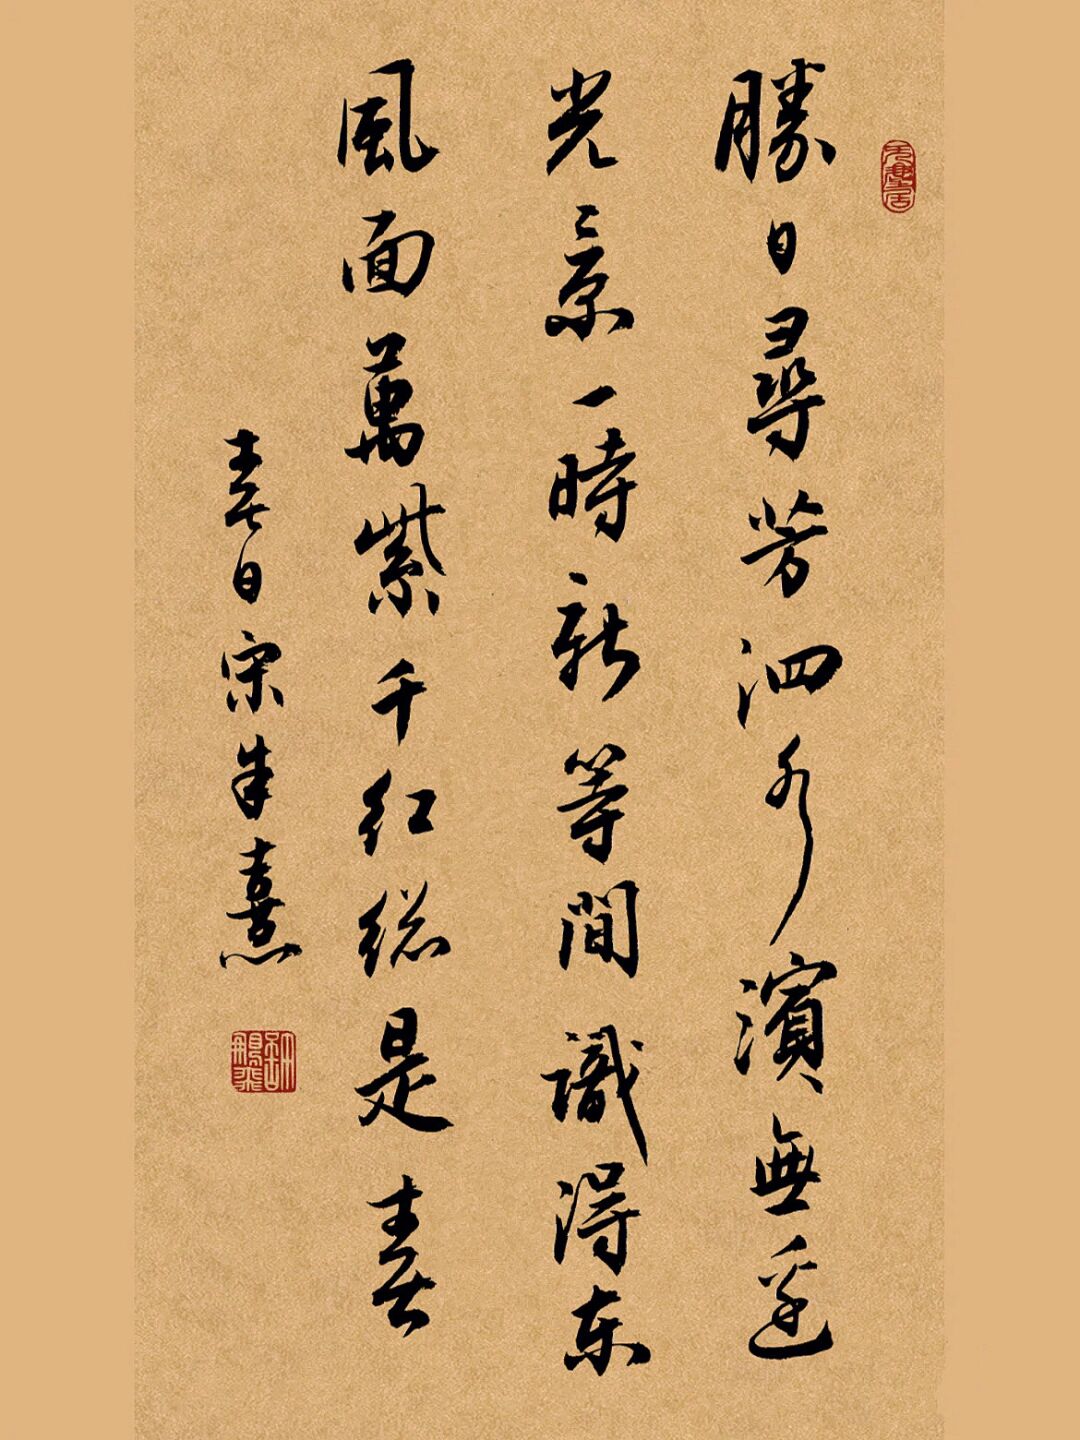 勝日尋芳泗水濱無邊
光景一時新等閒識得东
風面萬紫千红総是春
春日宋朱熹